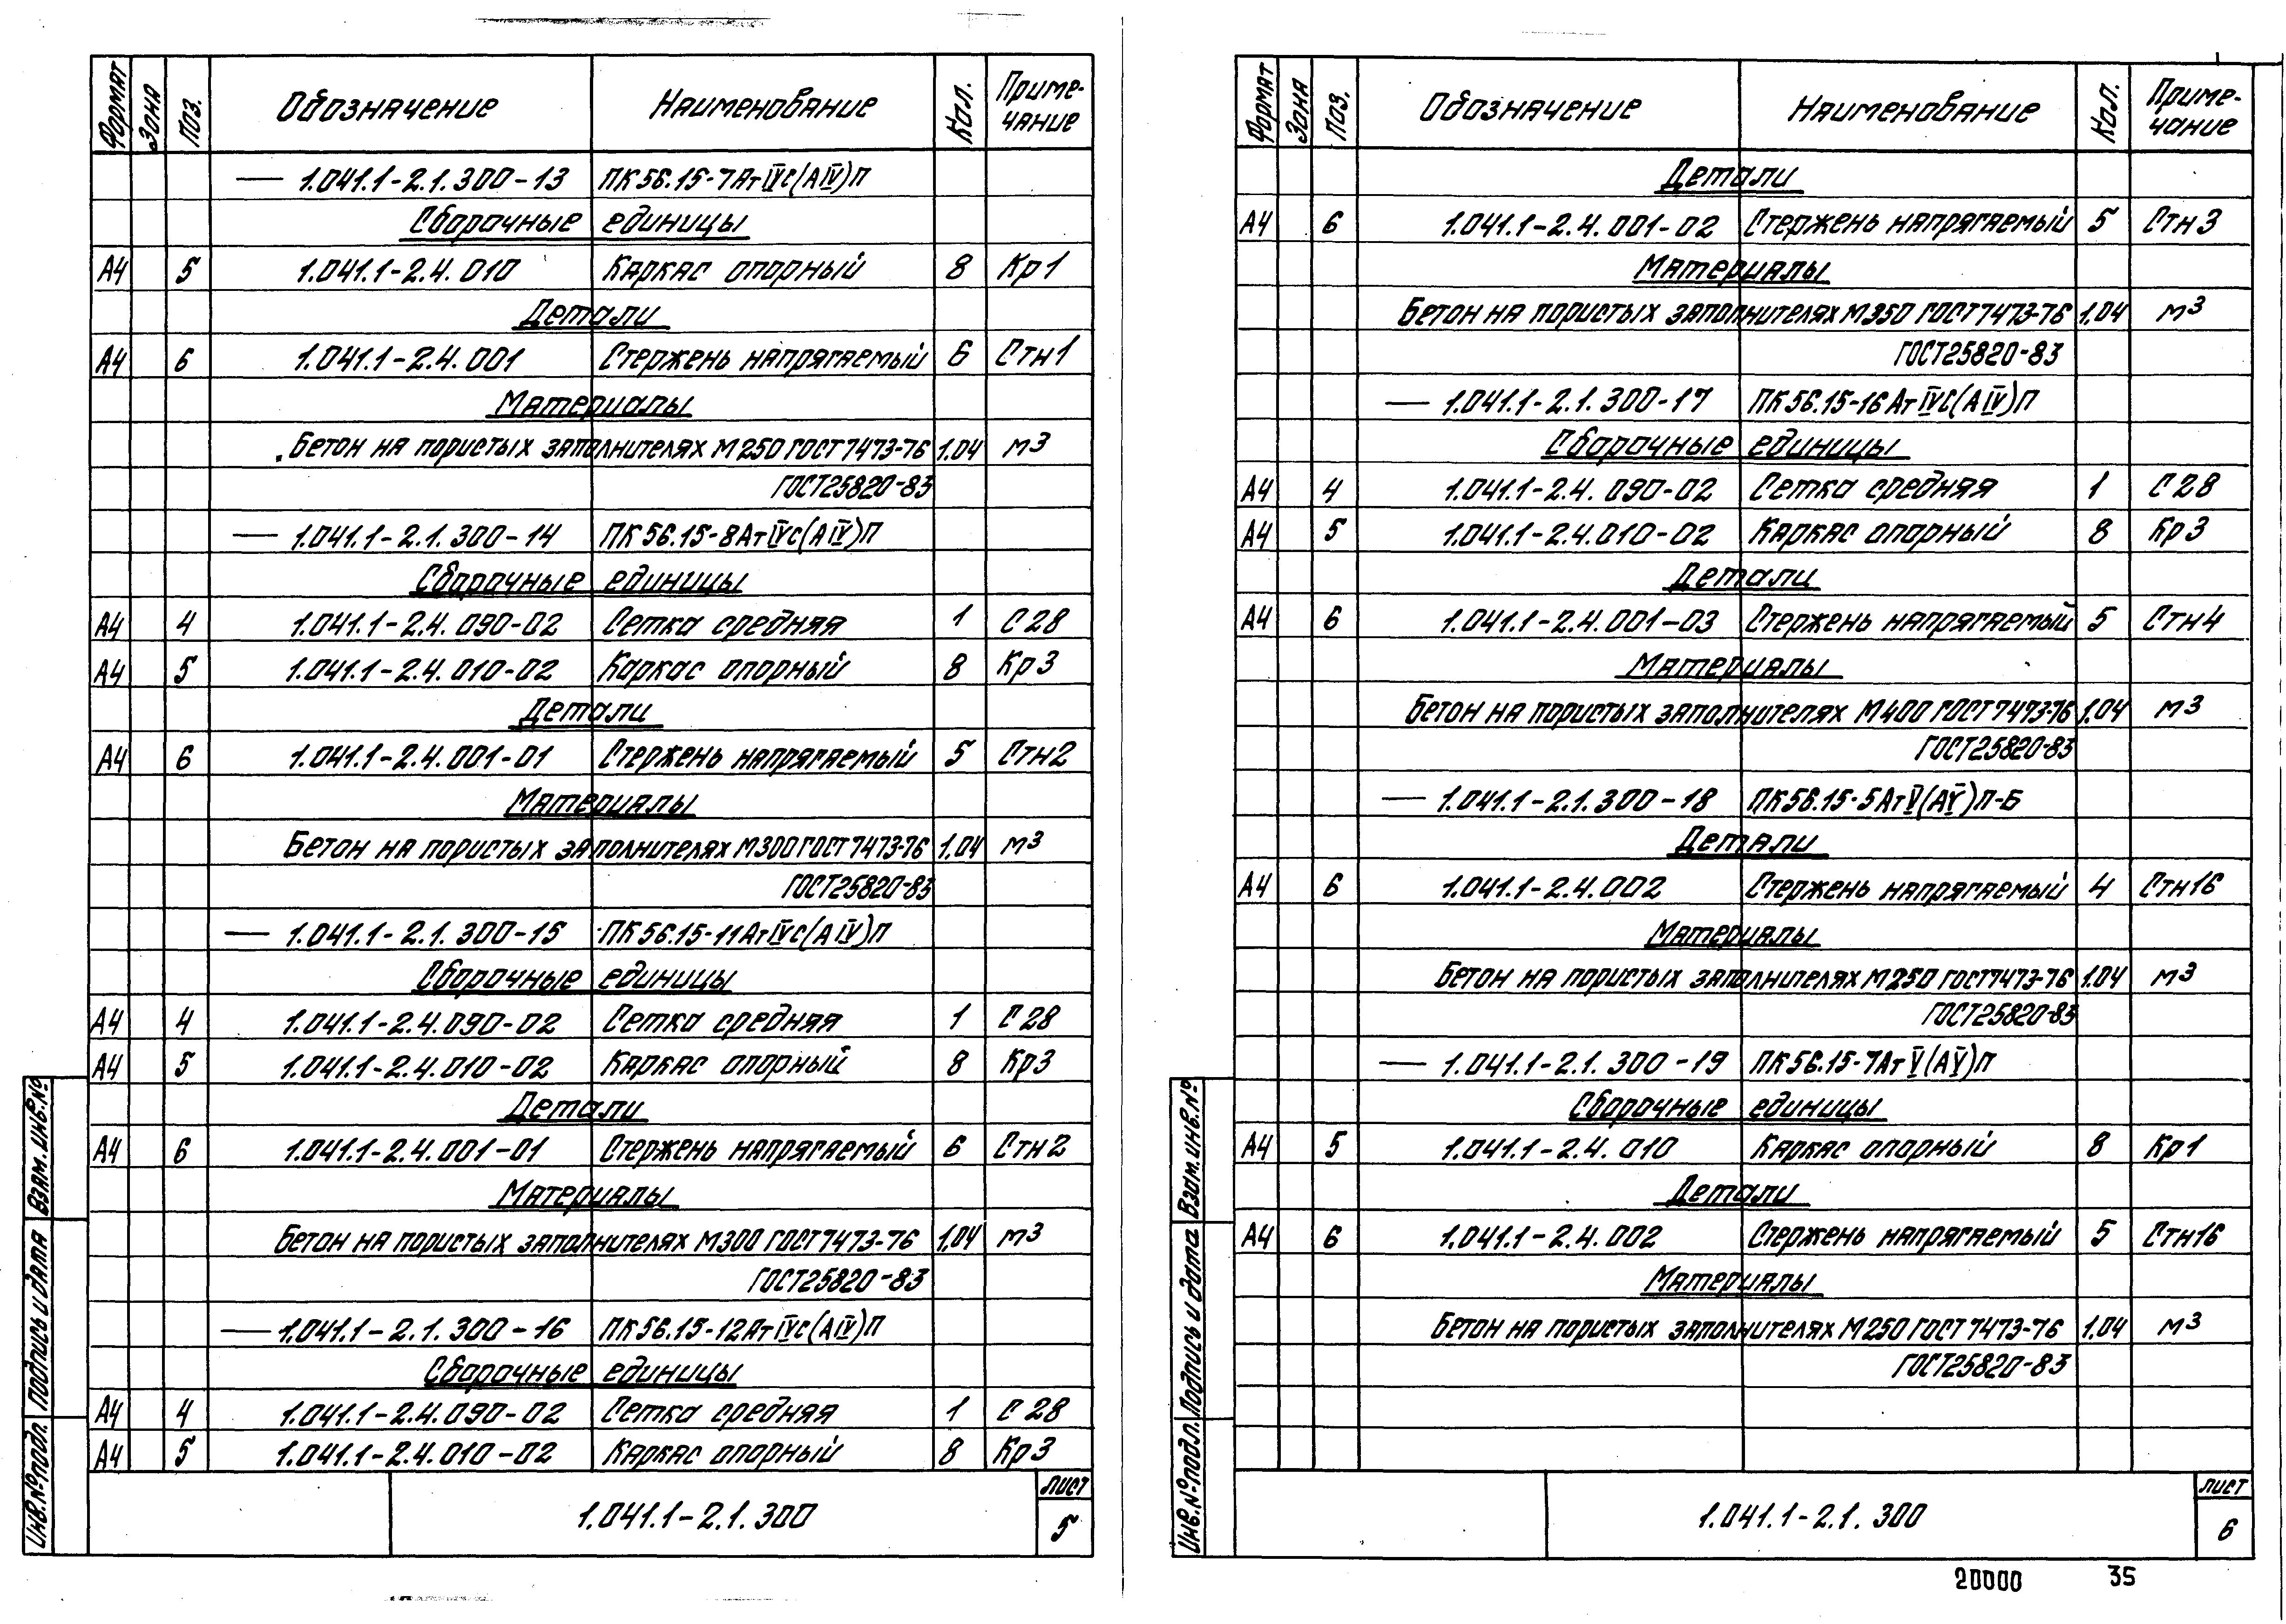 Формат Зона Поз. Обозначение Наименование Кол. Приме-
чание
— 1.041.1-2.1.300-13 ПК56.15-7АтIVС(АIV)П
Сборочные единицы
А4 5 1.041.1-2.4.010 Каркас опорный 8 Кр1
Детали
А4 6 1.041.1-2.4.001 Стержень напрягаемый 6 Стн1
Материалы
Бетон на пористых заполнителях М250 ГОСТ7473-76 1.04 м3
ГОСТ25820-83
— 1.041.1-2.1.300-14 ПК56.15-8АтIVС(АIV)П
Сборочные единицы
А4 4 1.041.1-2.4.090-02 Сетка средняя 1 С28
А4 5 1.041.1-2.4.010-02 Каркас опорный 8 Кр3
Детали
А4 6 1.041.1-2.4.001-01 Стержень напрягаемый 5 Стн2
Материалы
Бетон на пористых заполнителях М300 ГОСТ7473-76 1.04 м3
ГОСТ25820-83
— 1.041.1-2.1.300-15 ПК56.15-11АтIVС(АIV)П
Сборочные единицы
А4 4 1.041.1-2.4.090-02 Сетка средняя 1 С28
А4 5 1.041.1-2.4.010-02 Каркас опорный 8 Кр3
Детали
А4 6 1.041.1-2.4.001-01 Стержень напрягаемый 6 Стн2
Материалы
Бетон на пористых заполнителях М300 ГОСТ7473-76 1.04 м3
ГОСТ25820-83
— 1.041.1-2.1.300-16 ПК56.15-12АтIVС(АIV)П
Сборочные единицы
А4 4 1.041.1-2.4.090-02 Сетка средняя 1 С28
А4 5 1.041.1-2.4.010-02 Каркас опорный 8 Кр3
Инв.№подл. Подпись и дата Взам.инв.№
1.041.1-2.1.300
лист
5
Формат Зона Поз. Обозначение Наименование Кол. Приме-
чание
Детали
А4 6 1.041.1-2.4.001-02 Стержень напрягаемый 5 Стн3
Материалы
Бетон на пористых заполнителях М350 ГОСТ7473-76 1.04 м3
ГОСТ25820-83
— 1.041.1-2.1.300-17 ПК56.15-16АтIVС(АIV)П
Сборочные единицы
А4 4 1.041.1-2.4.090-02 Сетка средняя 1 С28
А4 5 1.041.1-2.4.010-02 Каркас опорный 8 Кр3
Детали
А4 6 1.041.1-2.4.001-03 Стержень напрягаемый 5 Стн4
Материалы
Бетон на пористых заполнителях М400 ГОСТ7473-76 1.04 м3
ГОСТ25820-83
— 1.041.1-2.1.300-18 ПК56.15-5АтV(АV)П-Б
Детали
А4 6 1.041.1-2.4.002 Стержень напрягаемый 4 Стн16
Материалы
Бетон на пористых заполнителях М250 ГОСТ7473-76 1.04 м3
ГОСТ25820-83
— 1.041.1-2.1.300-19 ПК56.15-7АтV(АV)П
Сборочные единицы
А4 5 1.041.1-2.4.010 Каркас опорный 8 Кр1
Детали
А4 6 1.041.1-2.4.002 Стержень напрягаемый 5 Стн16
Материалы
Бетон на пористых заполнителях М250 ГОСТ7473-76 1.04 м3
ГОСТ25820-83
Инв.№подл. Подпись и дата Взам.инв.№
1.041.1-2.1.300
лист
6
20000 35